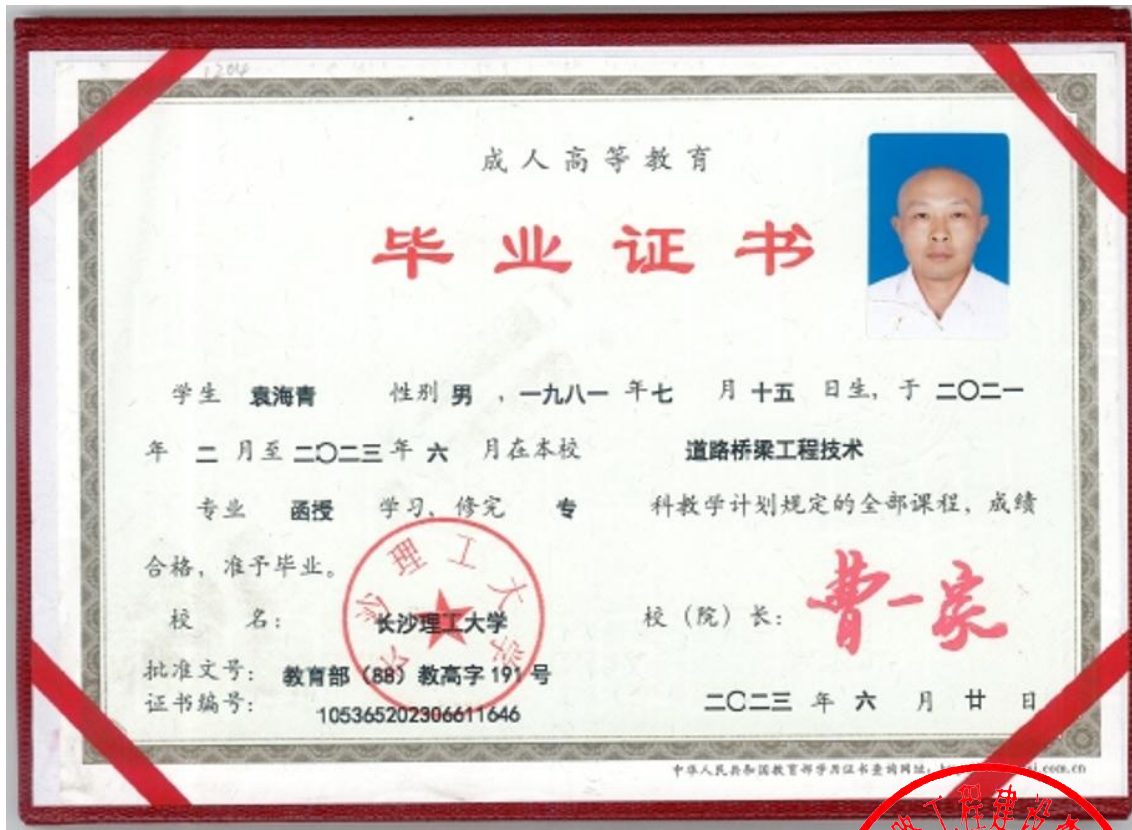 1204
成人高等教育
毕业证书
学生 袁海青 性别 男 ，一九八一 年 七 月 十五 日生，于 二〇二一
年 二 月至 二〇二三 年 六 月在本校 道路桥梁工程技术
专业 函授 学习、修完 专 科教学计划规定的全部课程，成绩
合格，准予毕业。
校 名： 长沙理工大学 校（院）长： 曹一家
长沙理工大学
批准文号： 教育部（88）教高字 191 号
证书编号： 105365202306611646
二〇二三 年 六 月 廿 日
中华人民共和国教育部学历证书查询网址：
工程建设